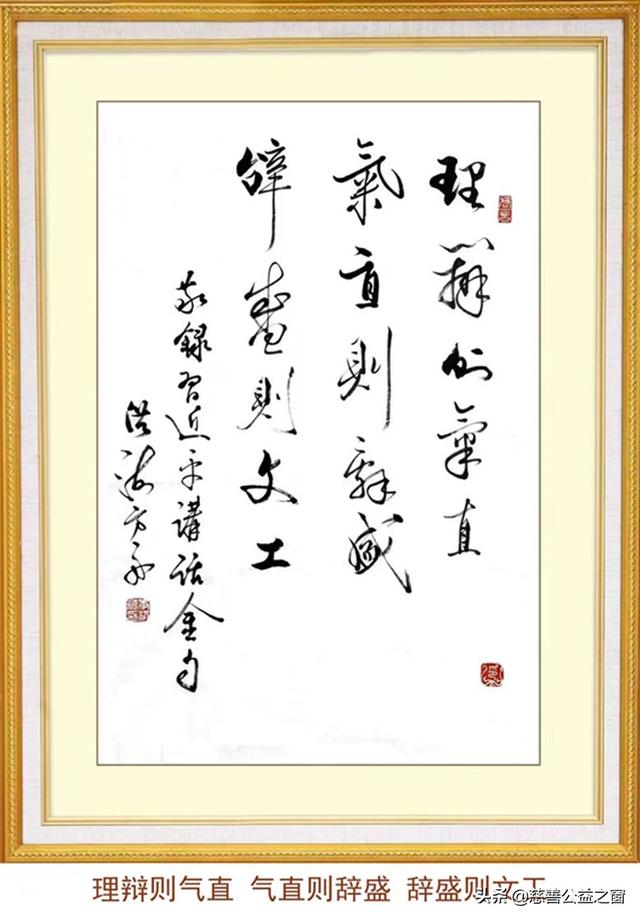 理辯則氣直
氣直則辭盛
辭盛則文工
敬録習近平講話金句
理辩则气直 气直则辞盛 辞盛则文工
头条 @慈善公益之窗